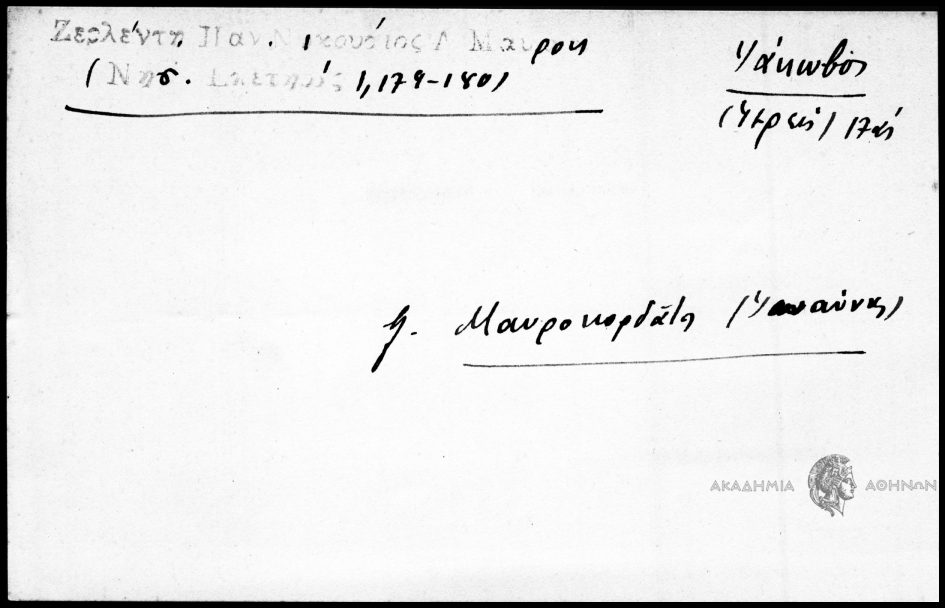 Ζερλέντη Παν. Νικουσίος Α. Μαυροκ
(Νησ. Επετηρίς 1, 179-180)
Ἰάκωβος
(Ἱερεὺς) 17ος
Μαυροκορδᾶτο (Ἰωάννης)
ΑΚΑΔΗΜΙΑ ΑΘΗΝΩΝ